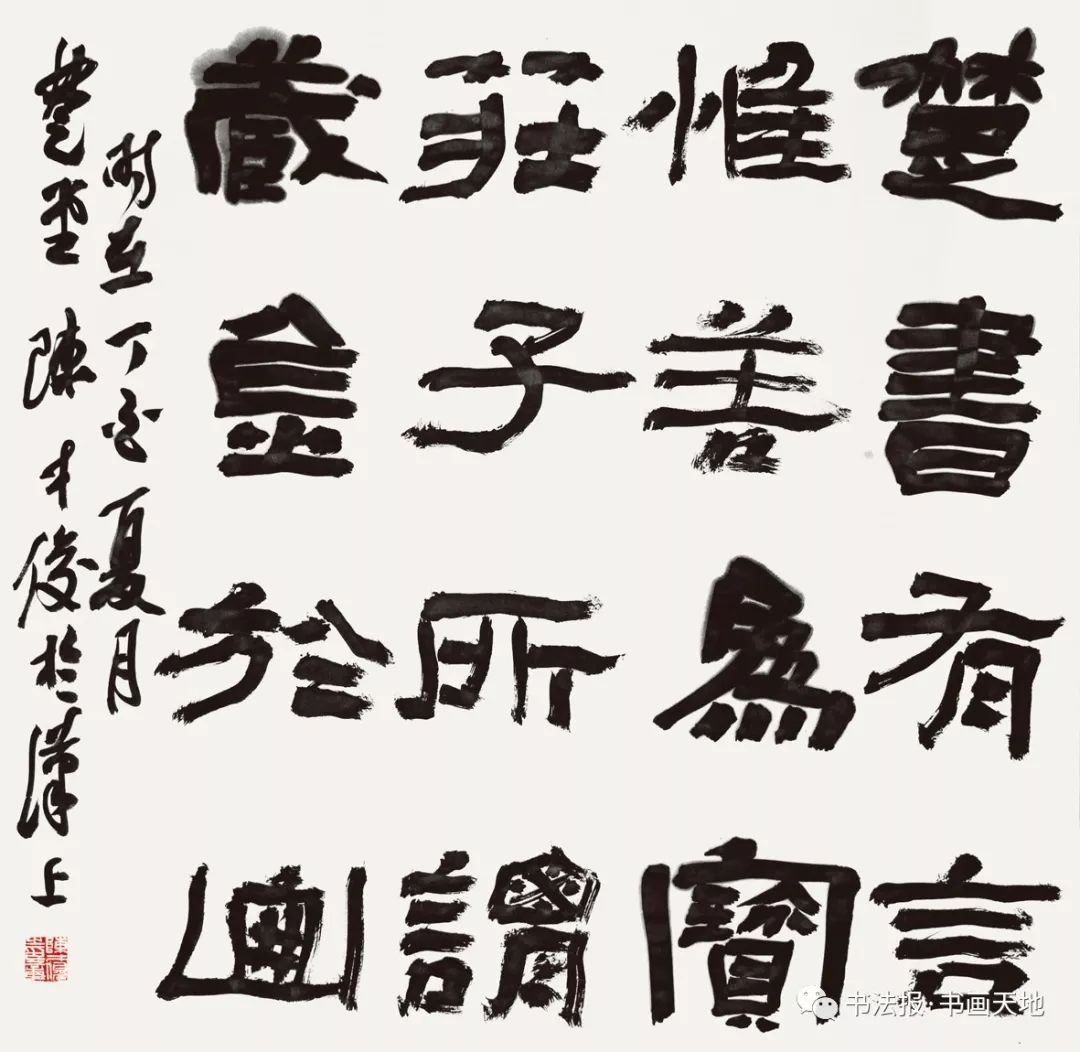 楚書有言
惟善為寶
莊子所謂
藏金於
時在丁酉夏月
楚堂陳俊於漢上
书法报·书画天地